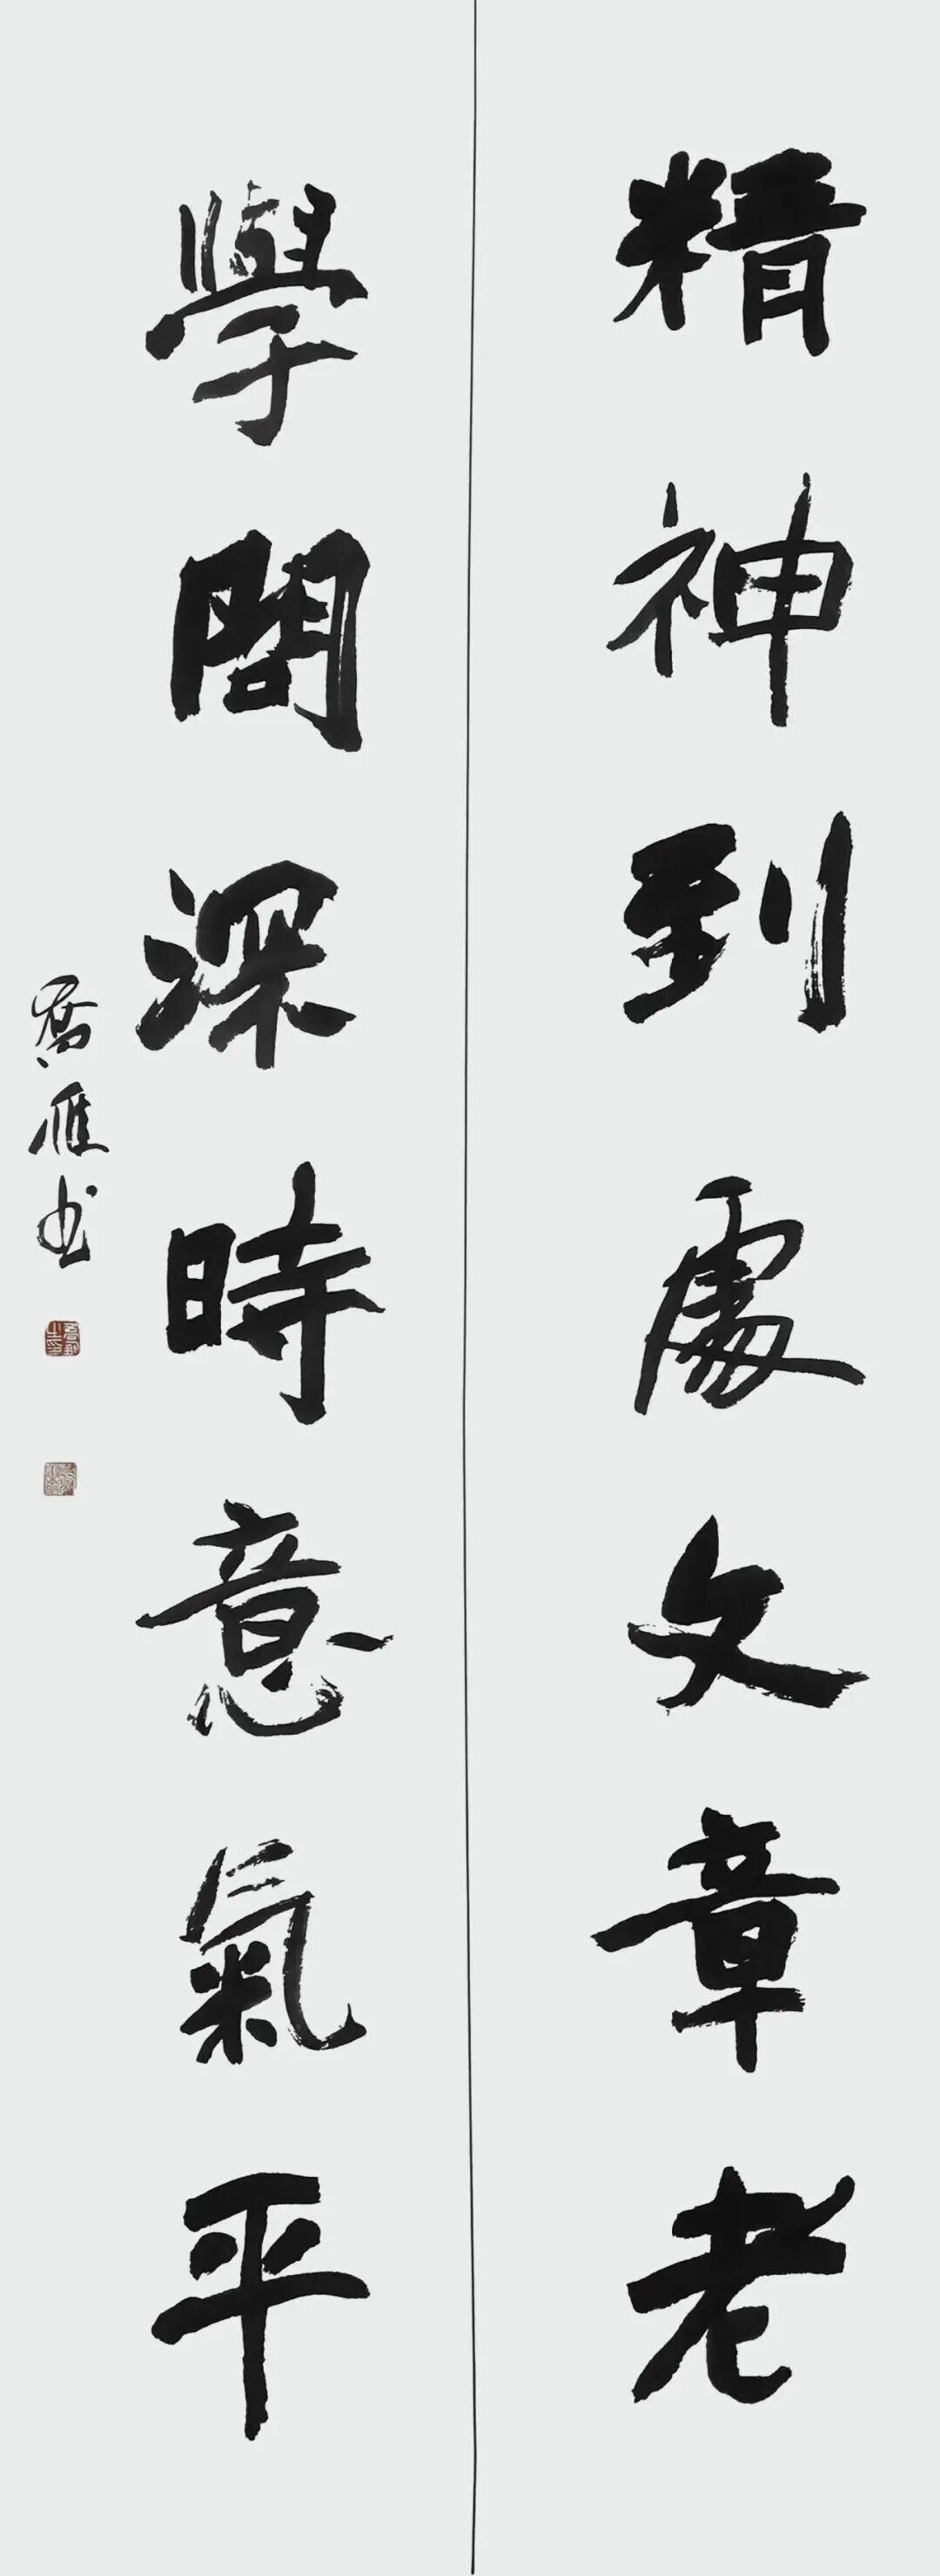 精神到處文章老
學問深時意氣平
喬雁书